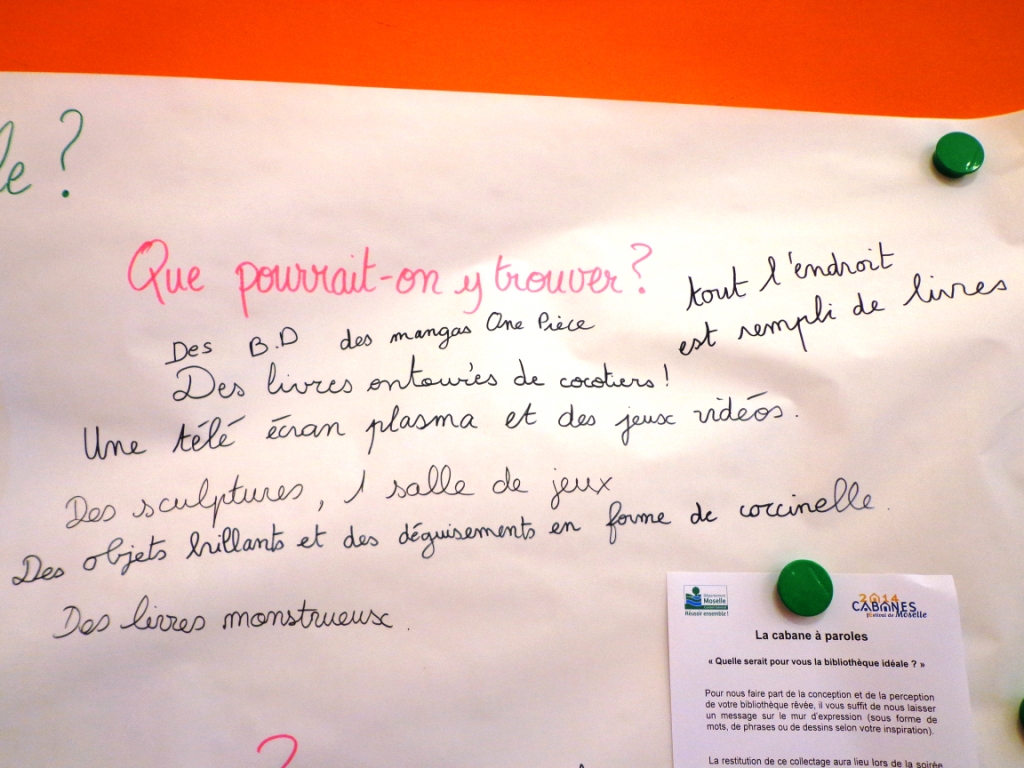 le ?
Que pourrait-on y trouver ?
tout l'endroit
est rempli de livres
Des B.D des mangas One Pièce
Des livres entourés de cocotiers !
Une télé écran plasma et des jeux vidéos.
Des sculptures, 1 salle de jeux
Des objets brillants et des déguisements en forme de coccinelle.
Des livres monstrueux.
Moselle
Réussir ensemble !
2014
CABANES
Moselle
La cabane à paroles
« Quelle serait pour vous la bibliothèque idéale ? »
Pour nous faire part de la conception et de la perception
de votre bibliothèque rêvée, il vous suffit de nous laisser
un message sur le mur d'expression (sous forme de
mots, de phrases ou de dessins selon votre inspiration).
La restitution de ce collectage aura lieu lors de la soirée
?